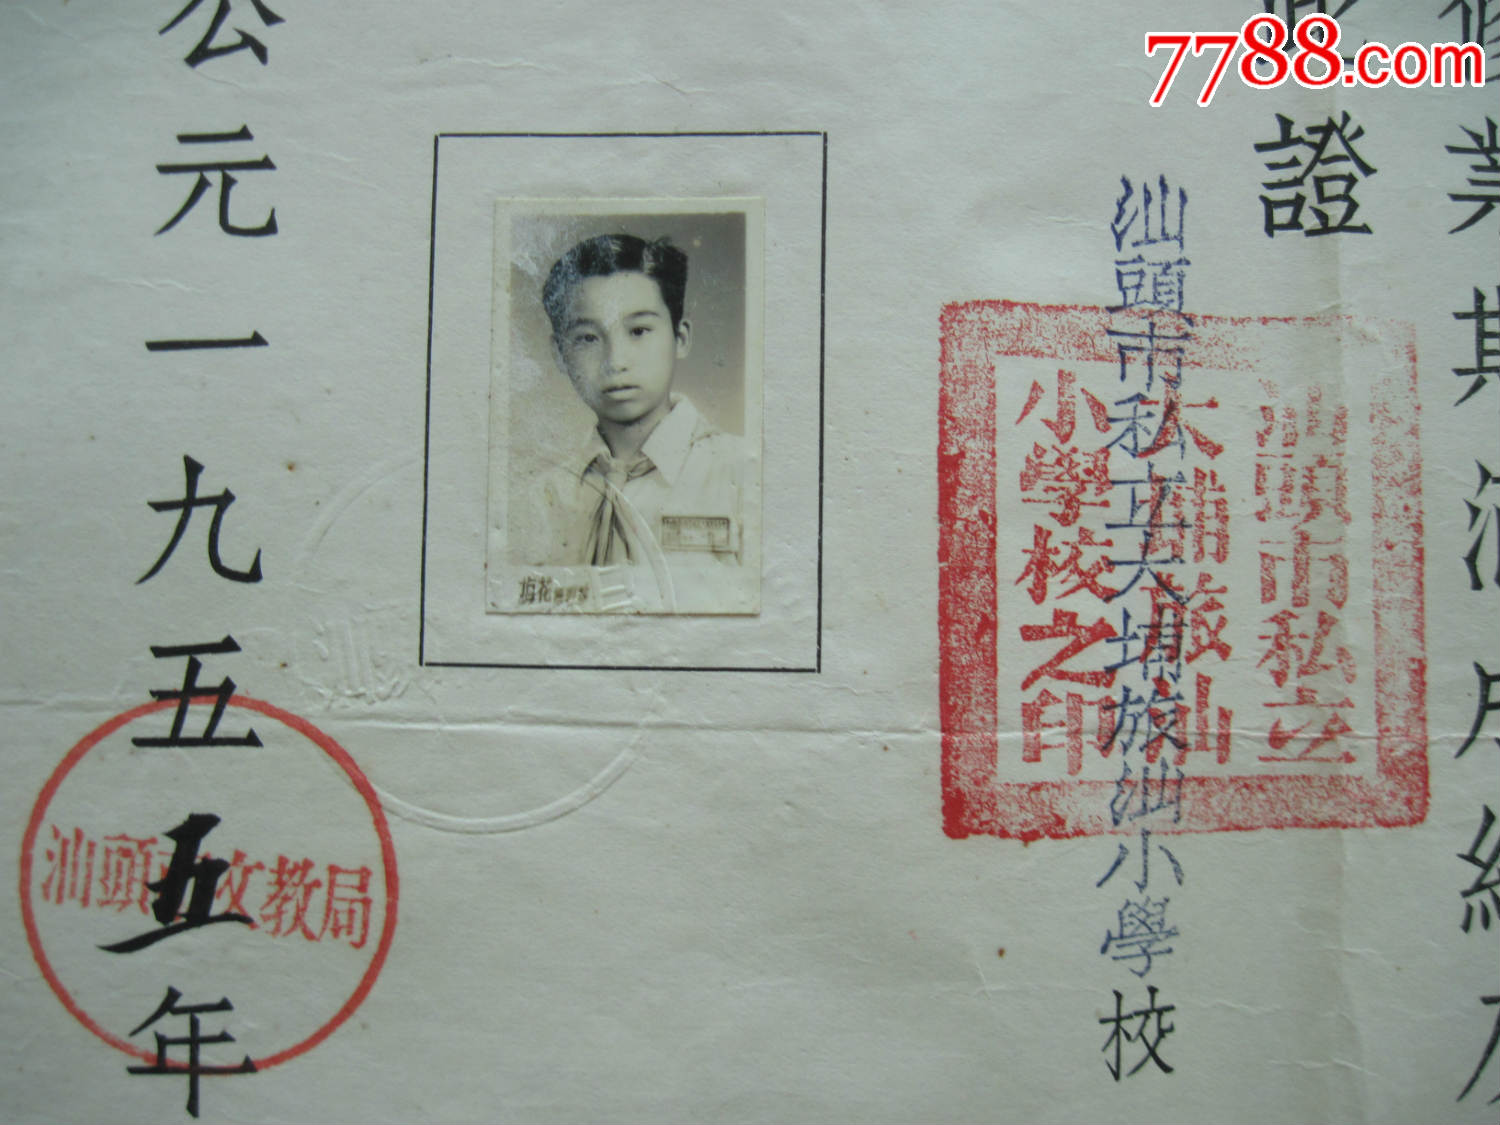 7788.com
修業期滿成績及
此證
汕頭市私立大埔旅汕小學校
汕頭市私立
大埔旅汕
小學校之印
梅花
公元一九五五年
汕頭市文教局